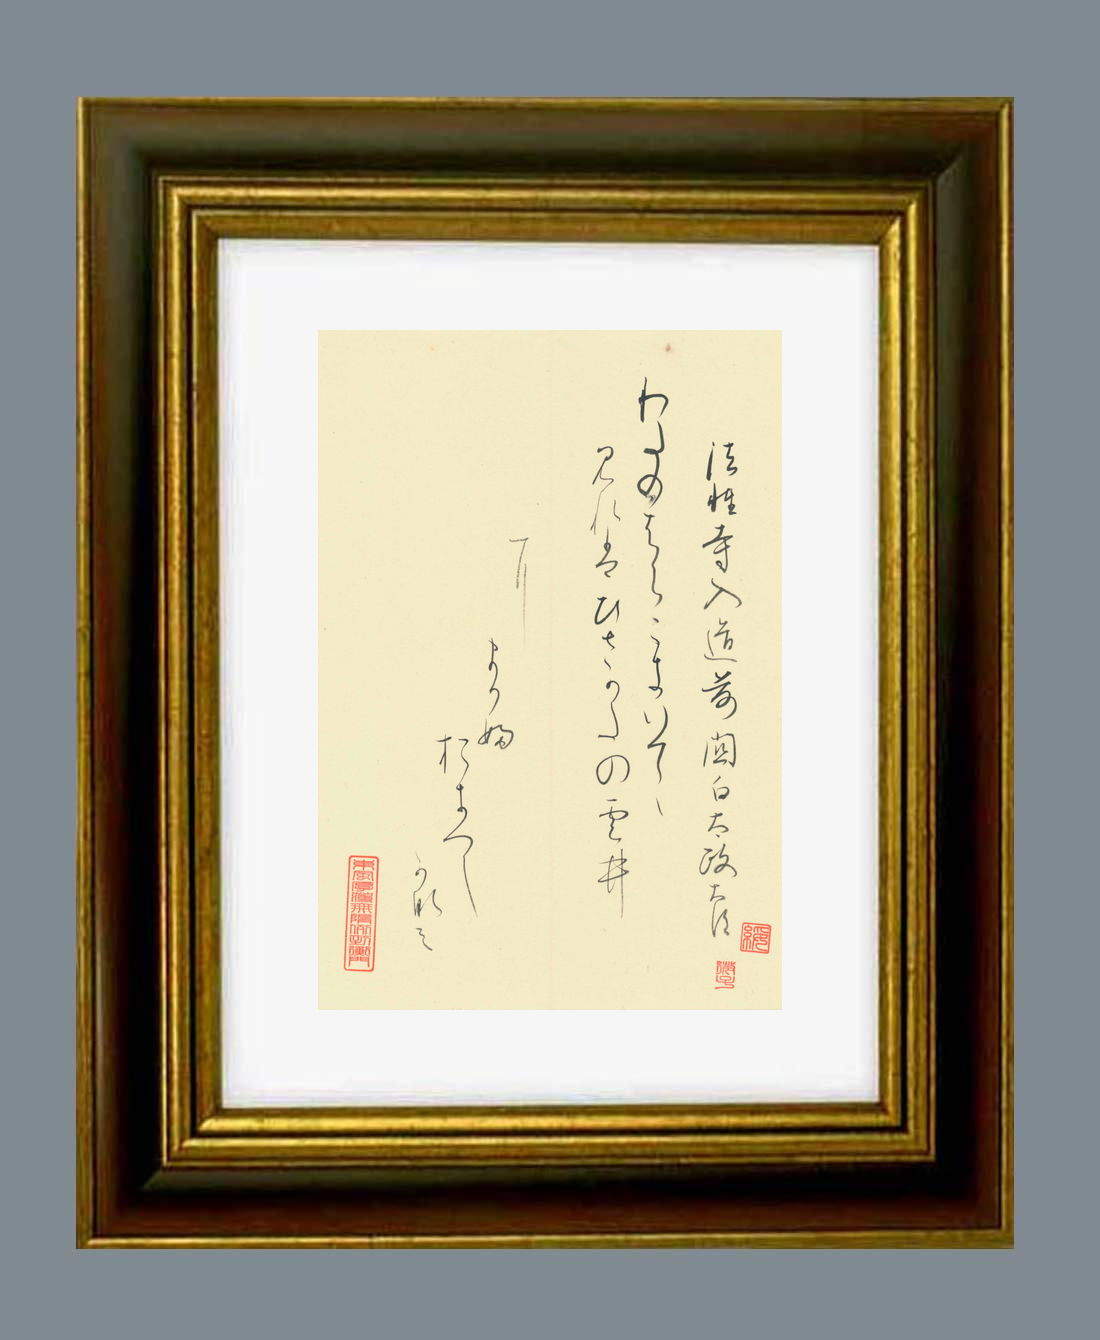 法性寺入道前関白太政大臣
わたのはらこきいてゝ
見れはひさかたの雲井
に
まかふ
おきつし
らなみ